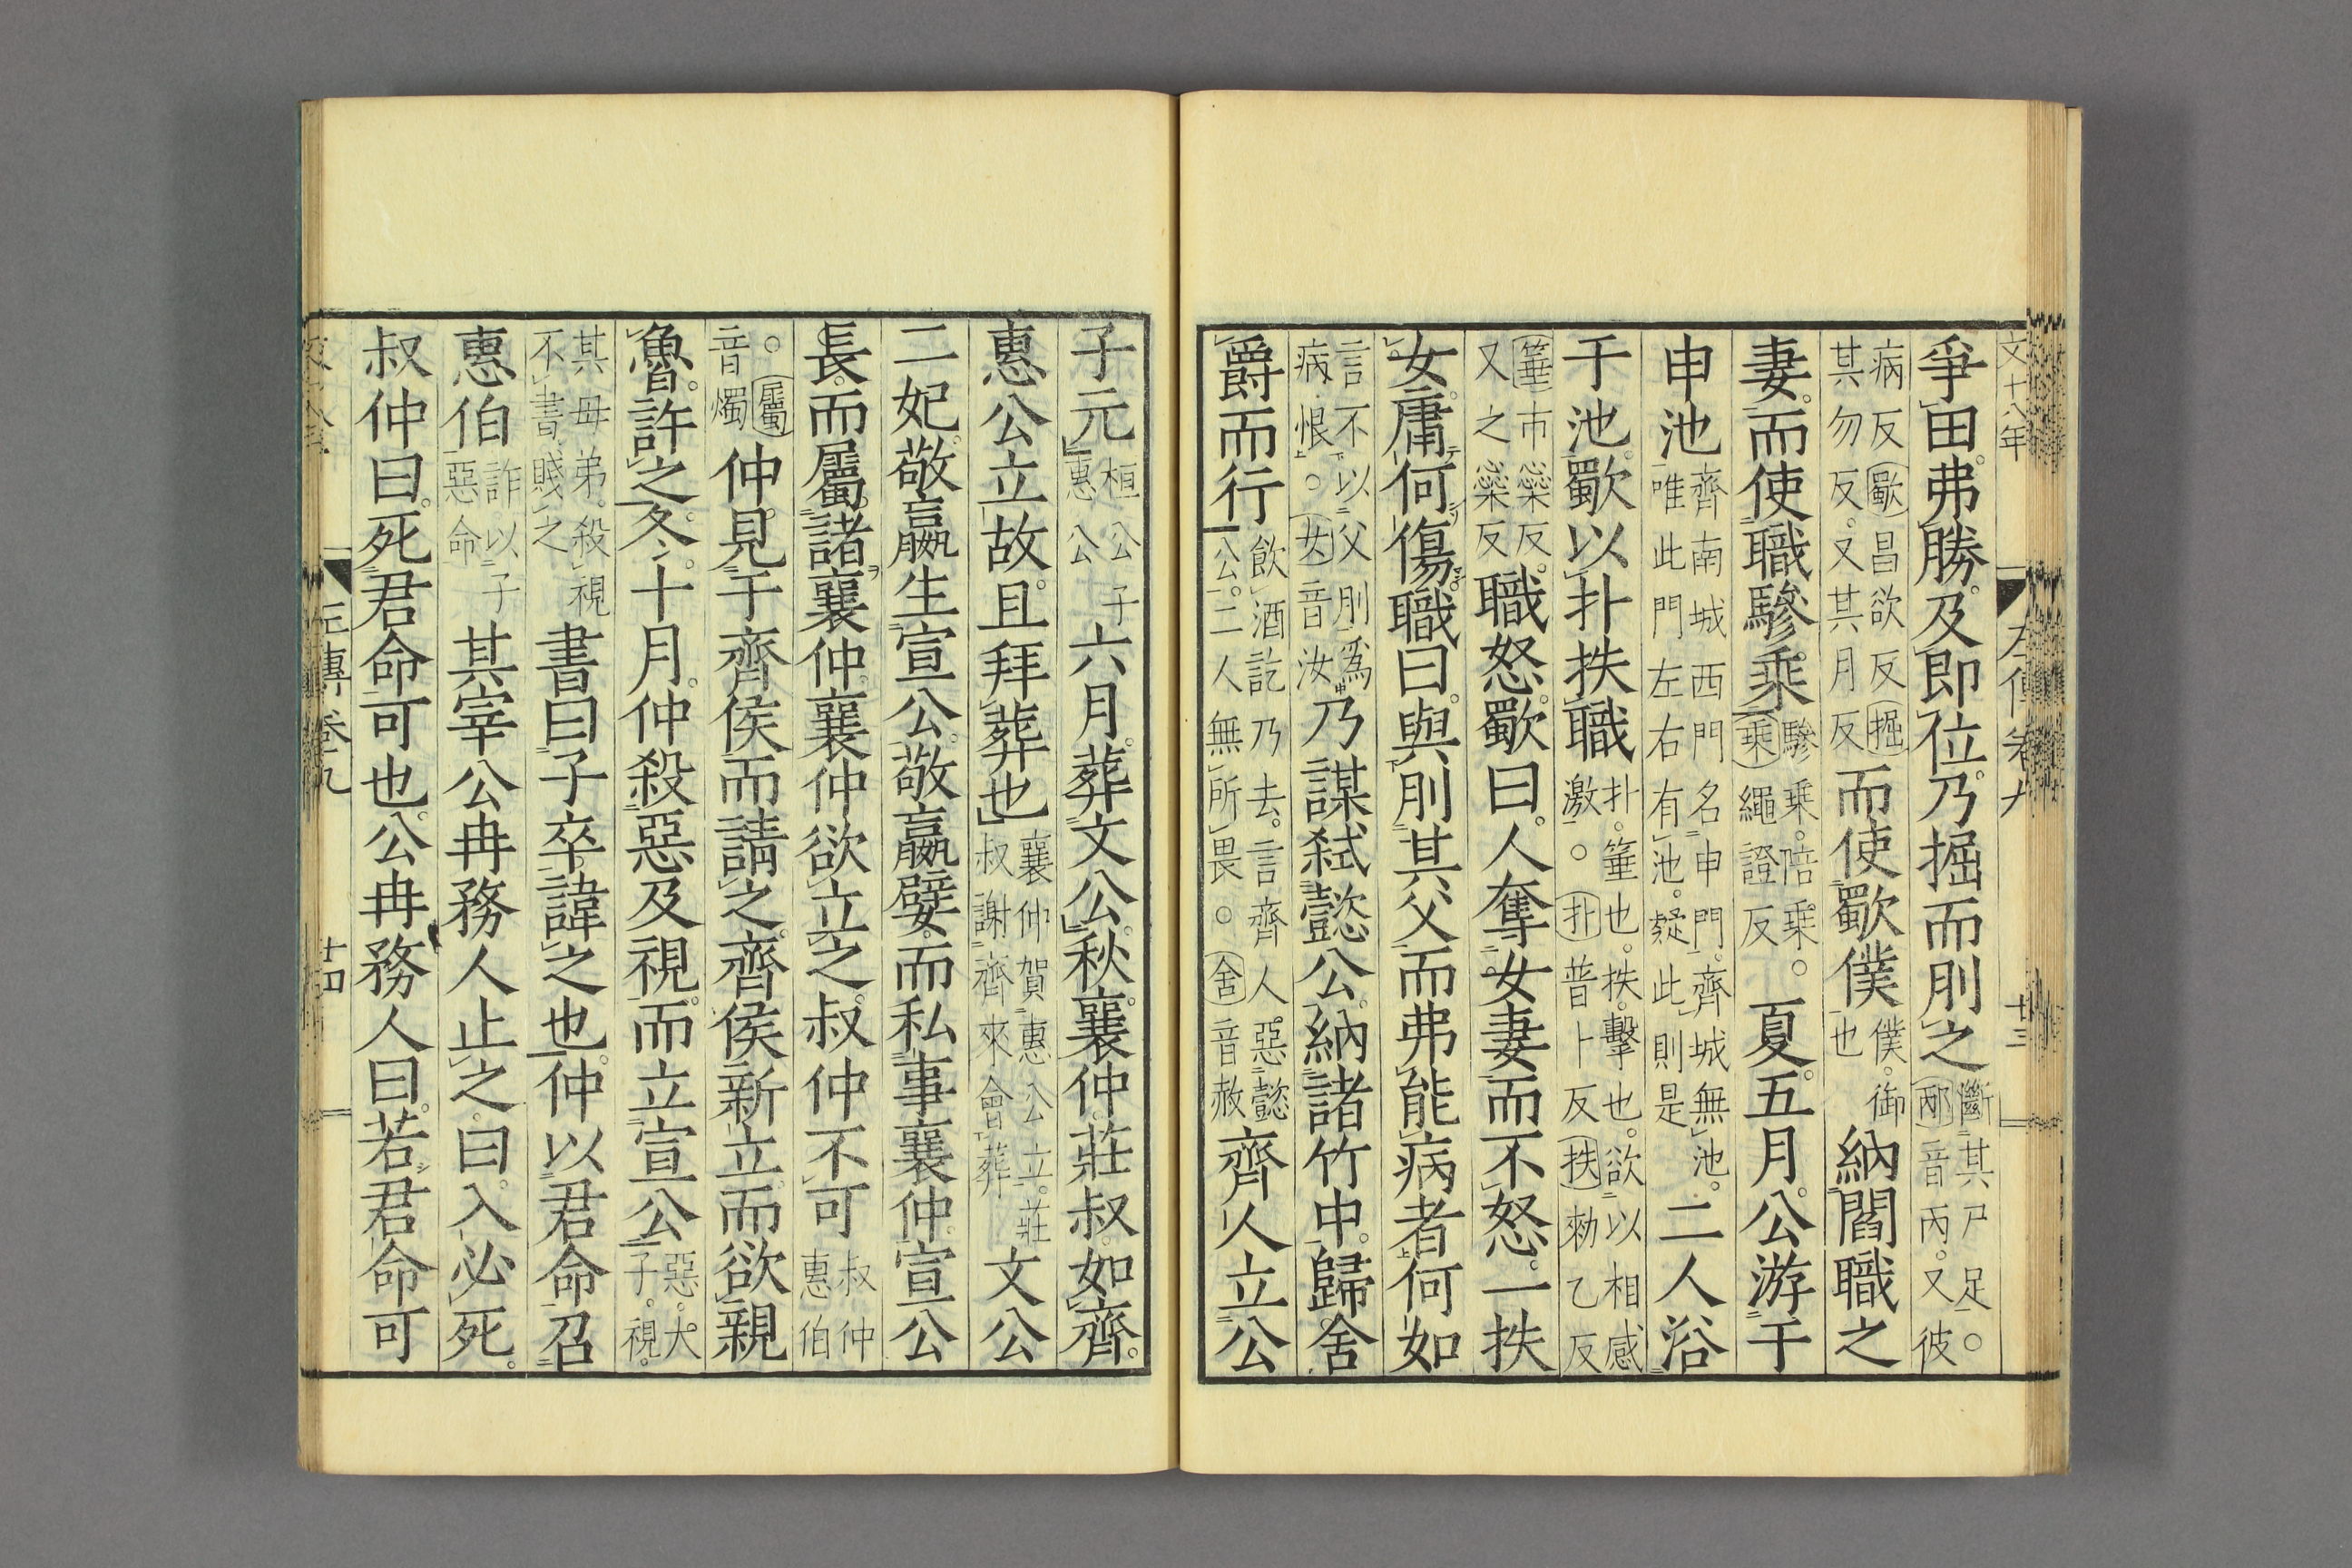 文十八年 左傳卷九 廿三
爭田。弗勝。及即位。乃掘而刖之斷其尸足。○邴音丙。又彼
病反歜昌欲反掘其勿反。又其月反而使歜僕僕。御也納閻職之
妻。而使職驂乘驂乘。陪乘。○乘繩證反夏五月。公游于
申池齊南城西門名申門。齊城無池。唯此門左右有池。疑此則是二人浴
于池。歜以扑抶職扑。箠也。抶。擊也。欲以相感激。○扑普卜反抶勑乙反
箠市橤反。又之橤反職怒。歜曰。人奪女妻而不怒。一抶
女。庸何傷。職曰。與刖其父而弗能病者何如
言不以父刖爲病恨。○女音汝乃謀弒懿公。納諸竹中。歸。舍
爵而行飲酒訖乃去。言齊人惡懿公。二人無所畏。○舍音赦齊人立公
子元桓公子惠公六月。葬文公。秋。襄仲。莊叔。如齊。
惠公立故。且拜葬也襄仲賀惠公立。莊叔謝齊來會葬文公
二妃。敬嬴生宣公。敬嬴嬖。而私事襄仲。宣公
長。而屬諸襄仲。襄仲欲立之。叔仲不可叔仲惠伯
○屬音燭仲見于齊侯而請之。齊侯新立。而欲親
魯。許之。冬。十月。仲殺惡及視。而立宣公惡。大子。視。
其母弟。殺視不書。賤之書曰子卒。諱之也。仲以君命召
惠伯詐以子惡命其宰公冉務人止之。曰。入必死。
叔仲曰。死君命可也。公冉務人曰。若君命可